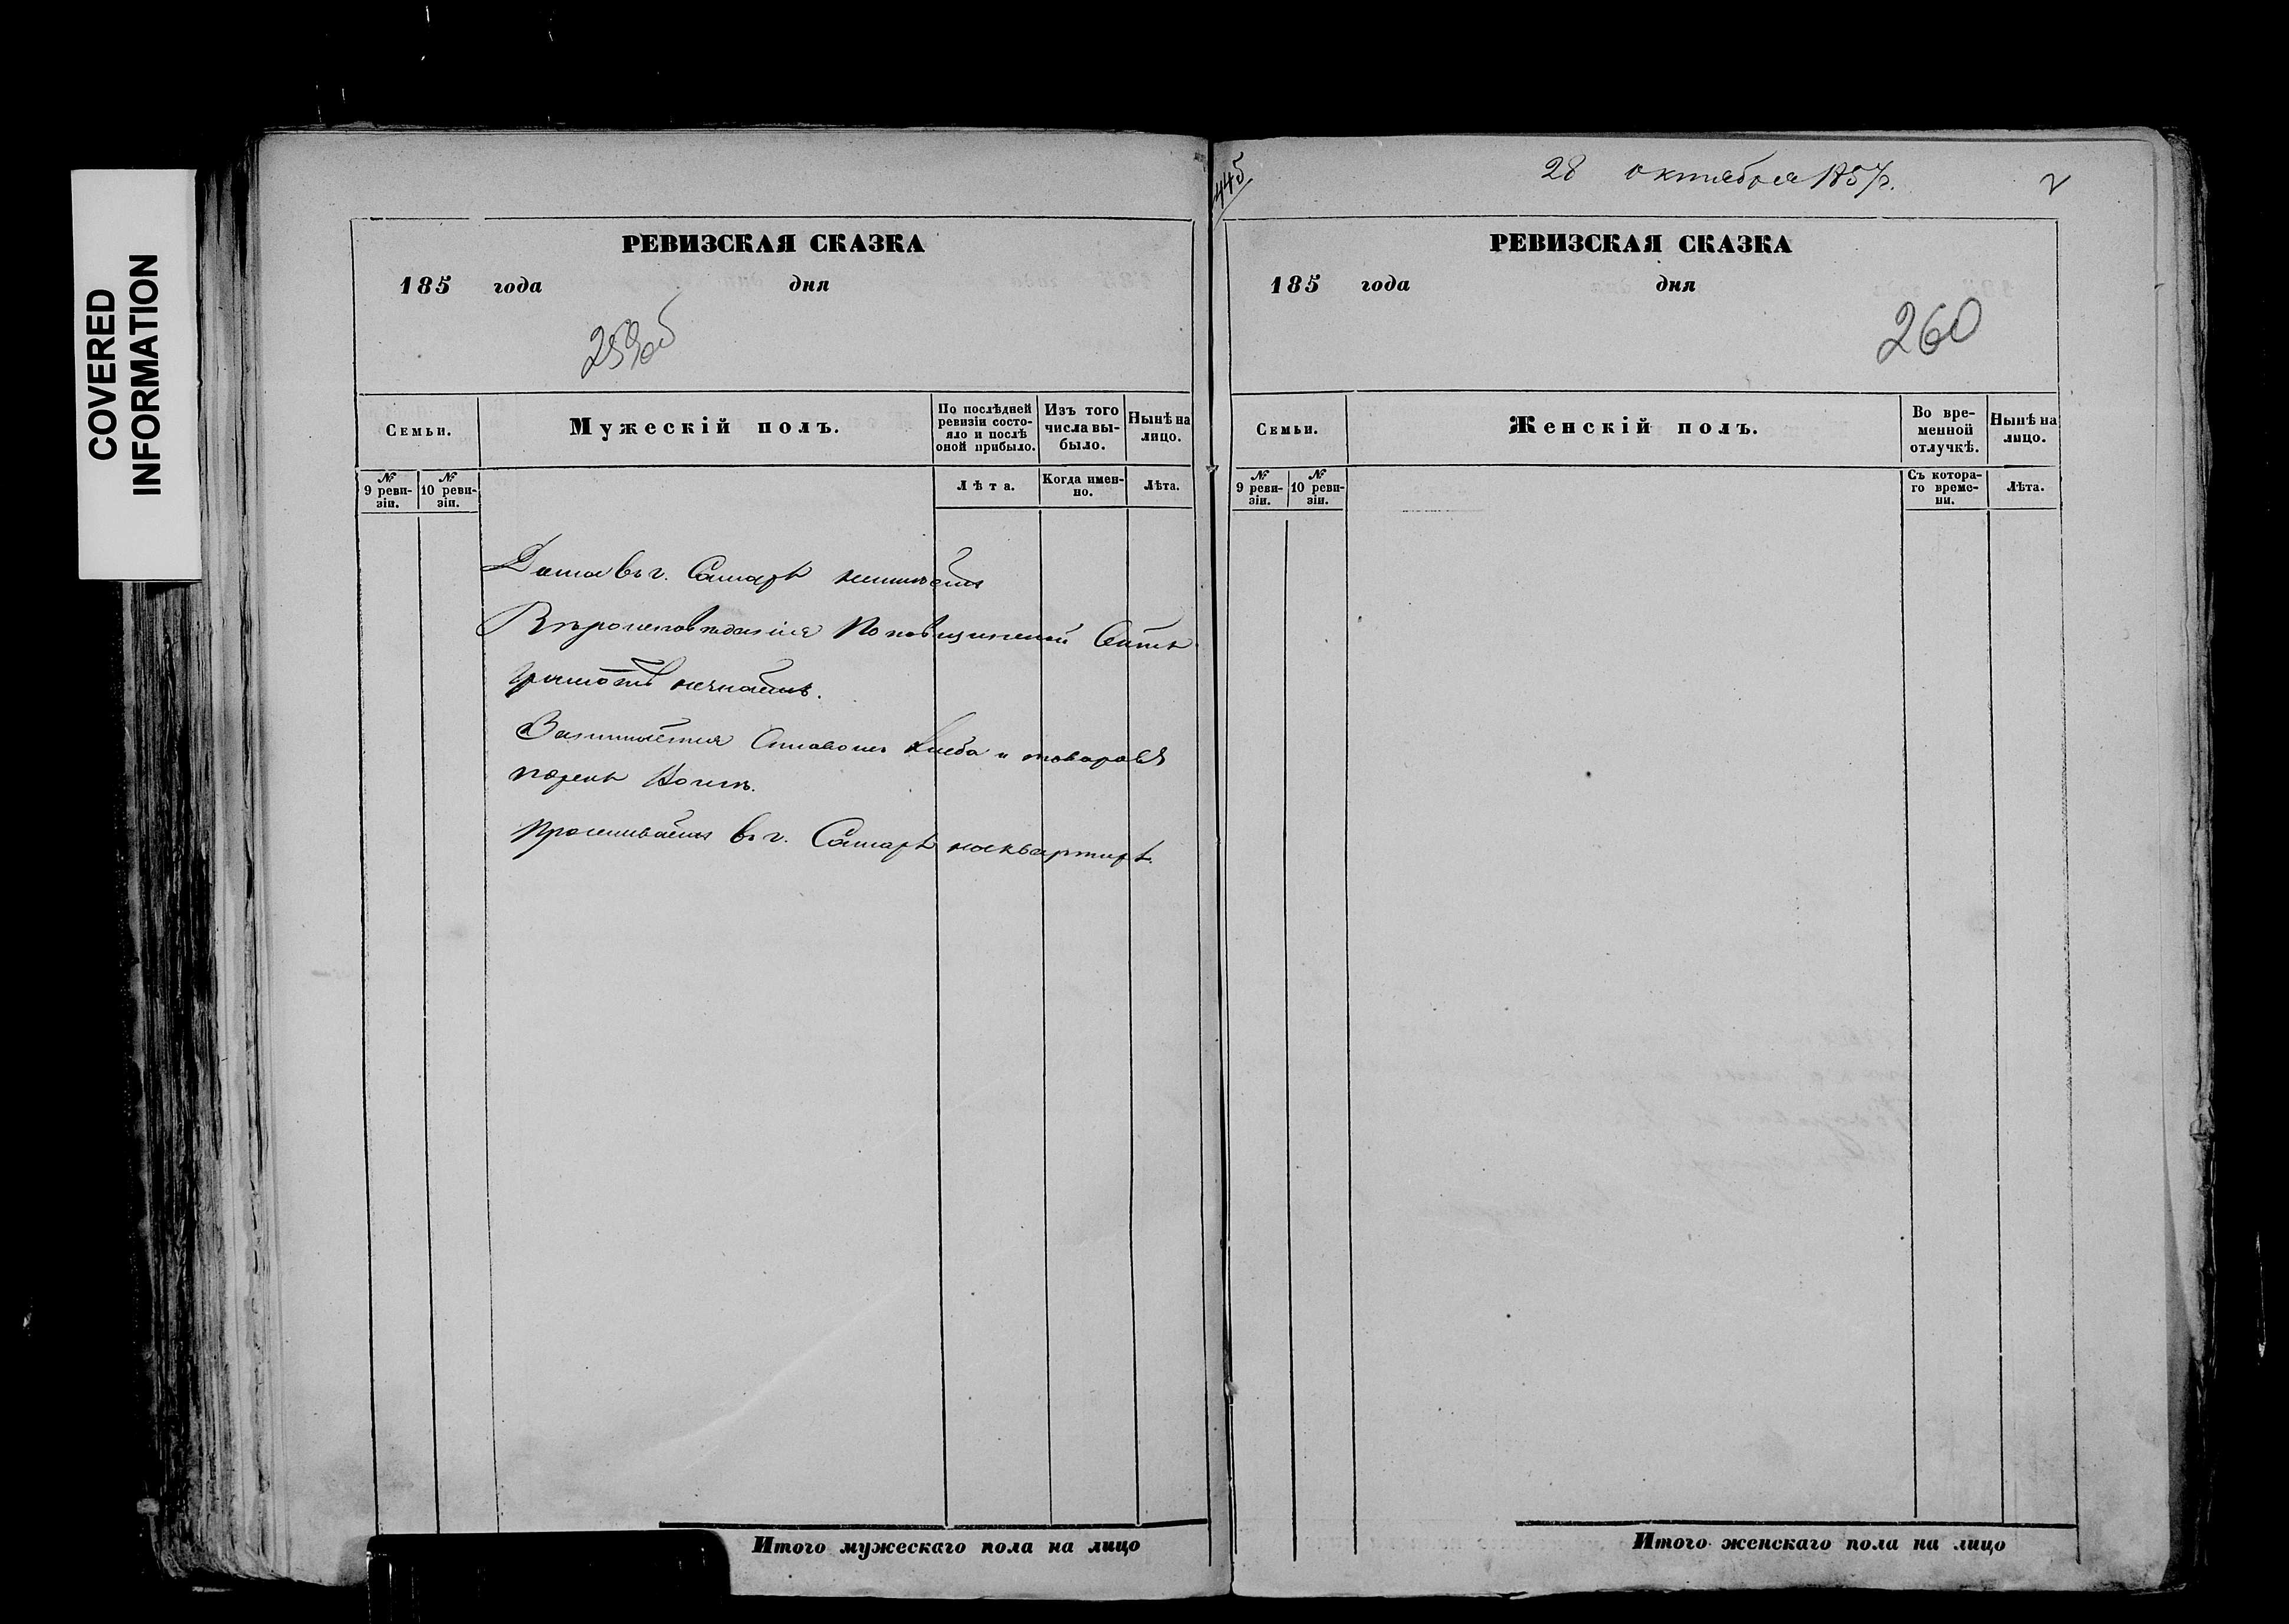 COVERED
INFORMATION
РЕВИЗСКАЯ СКАЗКА
185 года дня
259об
Семьи.
Мужескій полъ.
По послѣдней ревизіи состояло и послѣ оной прибыло.
Изъ того числа выбыло.
Нынѣ на лицо.
№ 9 ревизіи.
№ 10 ревизіи.
Лѣта.
Когда именно.
Лѣта.
Дома въ г. Самарѣ неимѣетъ
Вѣроисповѣданія Поповщинской Секты
Грамотѣ незнаетъ.
Занимается хлеба и товаровъ
Проживаетъ въ г. Самарѣ наквартирѣ.
Итого мужескаго пола на лицо
445
28 октября 1857г.
РЕВИЗСКАЯ СКАЗКА
185 года дня
260
Семьи.
Женскій полъ.
Во временной отлучкѣ.
Нынѣ на лицо.
№ 9 ревизіи.
№ 10 ревизіи.
Съ котораго времени.
Лѣта.
Итого женскаго пола на лицо